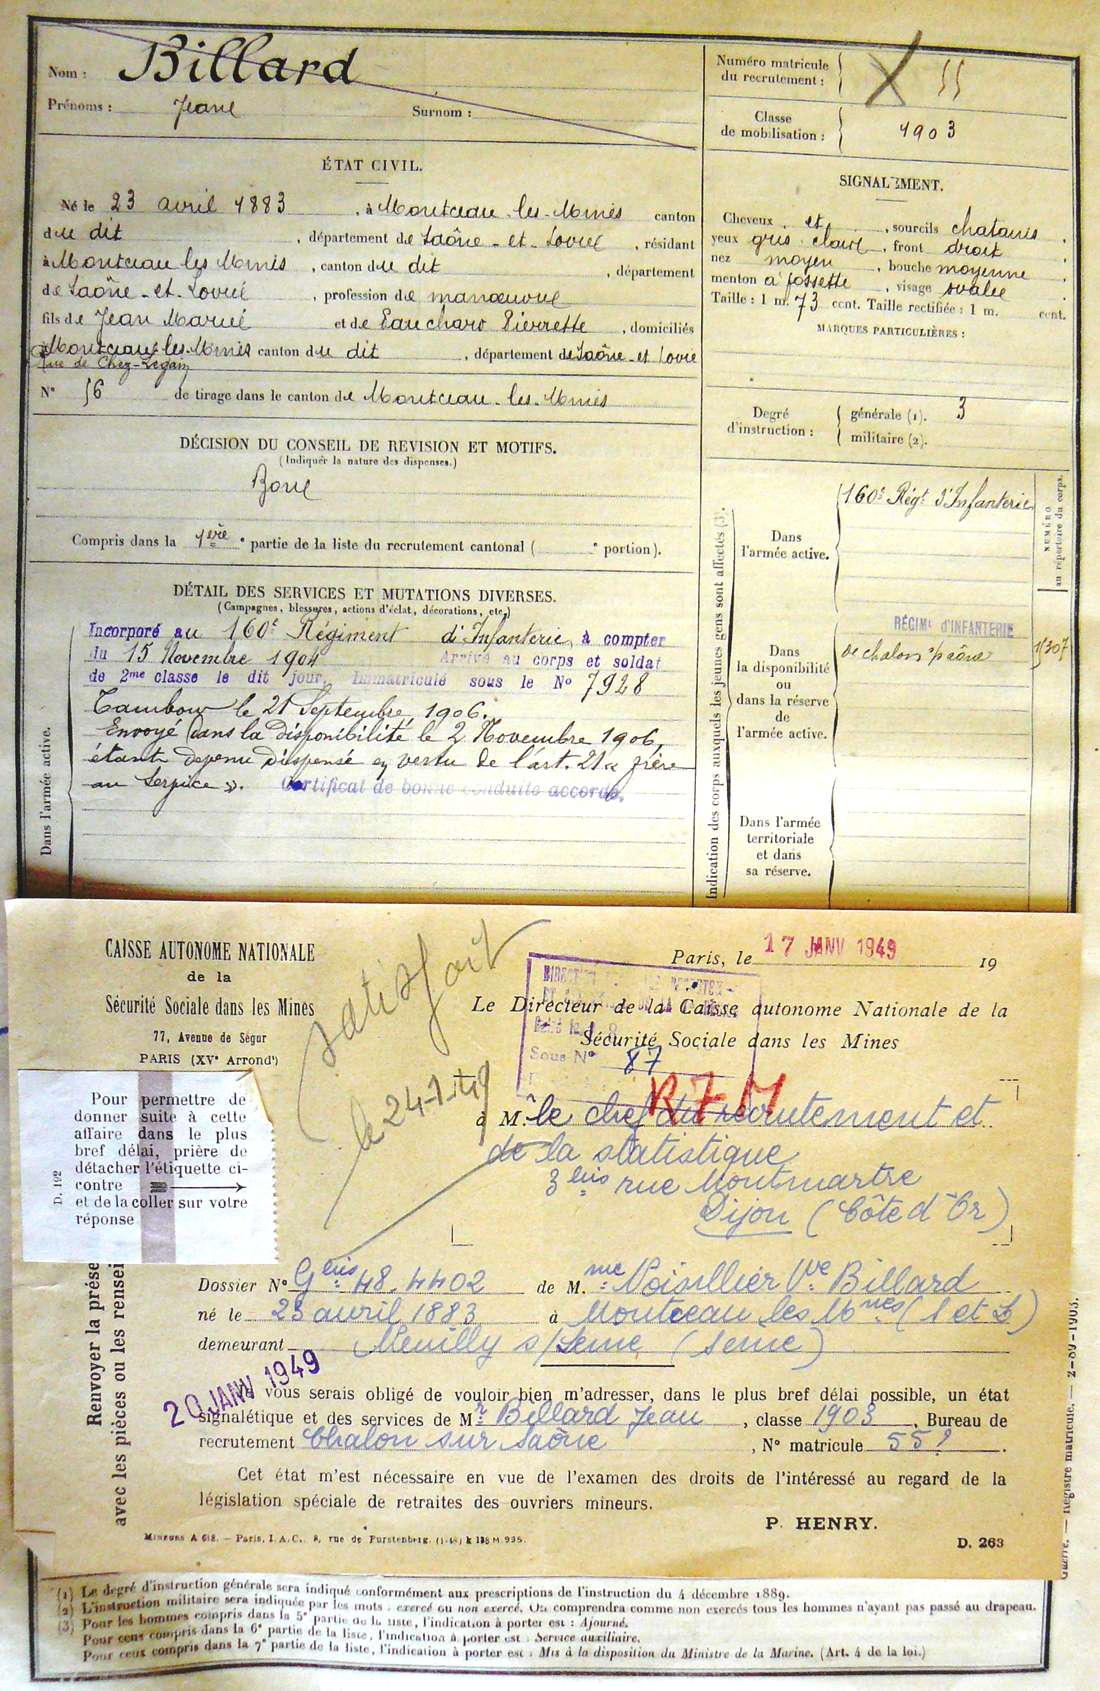 Nom : Billard
Prénoms : Jean Surnom :
Numéro matricule du recrutement : 55
Classe de mobilisation : 1903
ÉTAT CIVIL.
Né le 23 avril 1883, à Montceau-les-Mines canton
du dit, département de Saône-et-Loire, résidant
à Montceau les Mines, canton du dit, département
de Saône-et-Loire, profession de manœuvre
fils de Jean Marie et de Pierrette, domiciliés
à Montceau-les-Mines canton du dit, département de Saône-et-Loire
Rue de Chez-Legain
N° 56 de tirage dans le canton de Montceau-les-Mines
SIGNALEMENT.
Cheveux et, sourcils chatains,
yeux gris clair, front droit
nez moyen, bouche moyenne
menton à fossette, visage ovale
Taille : 1 m. 73 cent. Taille rectifiée : 1 m. cent.
MARQUES PARTICULIÈRES :
Degré d'instruction : générale (1). 3
militaire (2).
DÉCISION DU CONSEIL DE REVISION ET MOTIFS.
(Indiquer la nature des dispenses.)
Bon
Compris dans la 1ère partie de la liste du recrutement cantonal ( portion).
DÉTAIL DES SERVICES ET MUTATIONS DIVERSES.
(Campagnes, blessures, actions d'éclat, décorations, etc.)
Dans l'armée active.
Incorporé au 160e Régiment d'Infanterie, à compter
du 15 Novembre 1904 Arrivé au corps et soldat
de 2me classe le dit jour, Immatriculé sous le N° 7928
Tambour le 21 Septembre 1906.
Envoyé dans la disponibilité le 2 Novembre 1906,
étant devenu dispensé en vertu de l'art. 21 « frère
au Service ». Certificat de bonne conduite accordé.
Indication des corps auxquels les jeunes gens sont affectés (3).
NUMÉRO
au répertoire du corps.
Dans
l'armée active.
160e Régt d'Infanterie
Dans
la disponibilité
ou
dans la réserve
de
l'armée active.
RÉGIMt D'INFANTERIE
de chalon s/saône
Dans l'armée
territoriale
et dans
sa réserve.
CAISSE AUTONOME NATIONALE
de la
Sécurité Sociale dans les Mines
77, Avenue de Ségur
PARIS (XVe Arrondt)
Satisfait
le 24-1-49
Paris, le 17 JANV 1949 19
Le Directeur de la Caisse autonome Nationale de la
Sécurité Sociale dans les Mines
Sous N° 87
à M. le chef du recrutement et
de la statistique
3 bis rue Montmartre
Dijon (Côte d'Or)
Pour permettre de
donner suite à cette
affaire dans le plus
bref délai, prière de
détacher l'étiquette ci-
contre
et de la coller sur votre
réponse
D. 192
Renvoyer la prése
avec les pièces ou les rensei
Dossier N° 48.4402 de M. me Noisillier Vve Billard
né le 23 avril 1883 à Montceau les Mnes (S et L)
demeurant Neuilly s/Seine (Seine)
20 JANV 1949
Je vous serais obligé de vouloir bien m'adresser, dans le plus bref délai possible, un état
signalétique et des services de Mr Billard Jean, classe 1903, Bureau de
recrutement Chalon sur Saône, N° matricule 55?.
Cet état m'est nécessaire en vue de l'examen des droits de l'intéressé au regard de la
législation spéciale de retraites des ouvriers mineurs.
P. HENRY.
MINEURS A 618. — Paris, I.A.C., 8, rue de Furstenberg.
D. 263
Guerre. — Registre matricule. — 2-89-1903.
(1) Le degré d'instruction générale sera indiqué conformément aux prescriptions de l'instruction du 4 décembre 1889.
(2) L'instruction militaire sera indiquée par les mots : exercé ou non exercé. On comprendra comme non exercés tous les hommes n'ayant pas passé au drapeau.
(3) Pour les hommes compris dans la 5e partie de la liste, l'indication à porter est : Ajourné.
Pour ceux compris dans la 6e partie de la liste, l'indication à porter est : Service auxiliaire.
Pour ceux compris dans la 7e partie de la liste, l'indication à porter est : Mis à la disposition du Ministre de la Marine. (Art. 4 de la loi.)